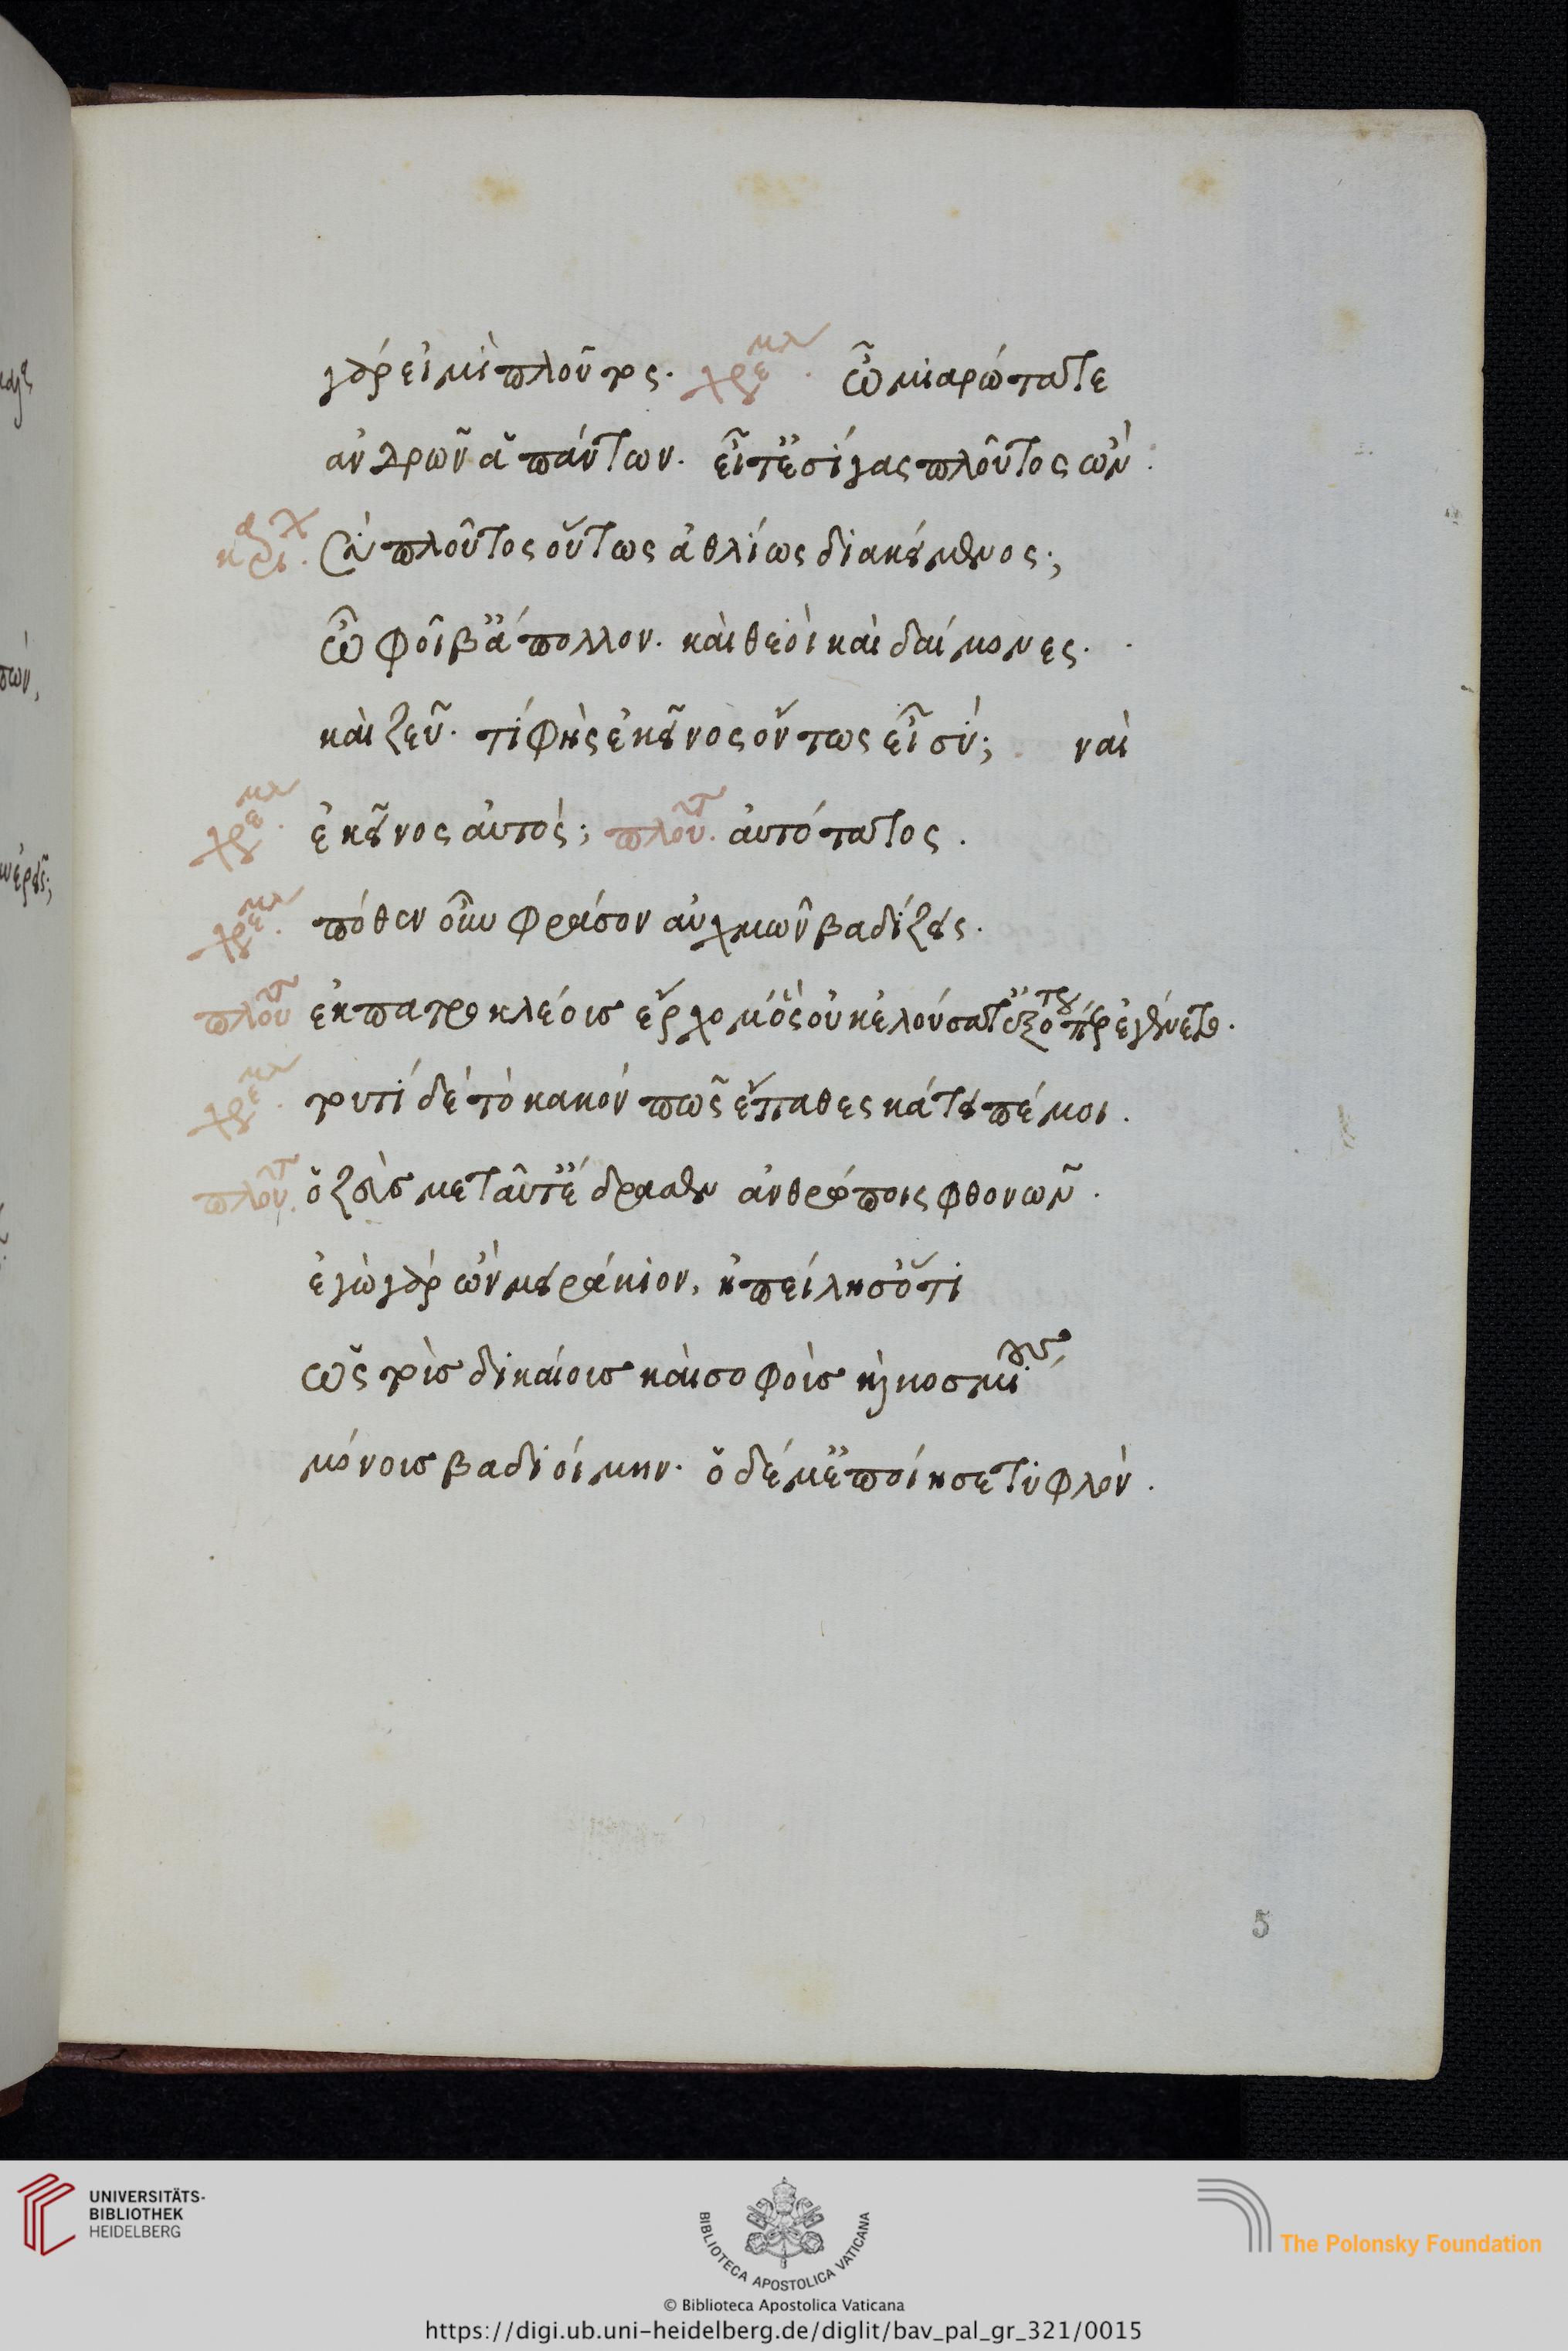 γάρ εἰμι πλοῦτος. χρεμυ. ὦ μιαρώτατε
ἀνδρῶν ἁπάντων. εἶτ' ἐσίγας πλοῦτος ὤν.
καρι. σὺ πλοῦτος οὕτως ἀθλίως διακείμενος;
ὦ φοῖβ' ἄπολλον. καὶ θεοὶ καὶ δαίμονες.
καὶ ζεῦ. τί φὴς ἐκεῖνος ὄντως εἶ σύ; ναὶ
χρεμυ. ἐκεῖνος αὐτός; πλουτ. αὐτότατος.
χρεμυ. πόθεν οὖν φράσον αὐχμῶν βαδίζεις.
πλουτ ἐκ πατροκλέοις ἔρχομ' ὃς οὐκ ἐλούσατ' ἐξ ὅτου περ ἐγένετο.
χρεμυ. τουτί δὲ τὸ κακόν πῶς ἔπαθες κάτειπέ μοι.
πλουτ. ὁ ζεύς με ταῦτ' ἔδρασεν ἀνθρώποις φθονῶν.
ἐγὼ γάρ ὢν μειράκιον, ἠπείλησ' ὅτι
ὡς τοὺς δικαίοις καὶ σοφοὶς καὶ κοσμίους
μόνοις βαδιοίμην. ὁ δέ μ' ἐποίησε τυφλόν.
5
UNIVERSITÄTS-
BIBLIOTHEK
HEIDELBERG
BIBLIOTECA APOSTOLICA VATICANA
The Polonsky Foundation
© Biblioteca Apostolica Vaticana
https://digi.ub.uni-heidelberg.de/diglit/bav_pal_gr_321/0015